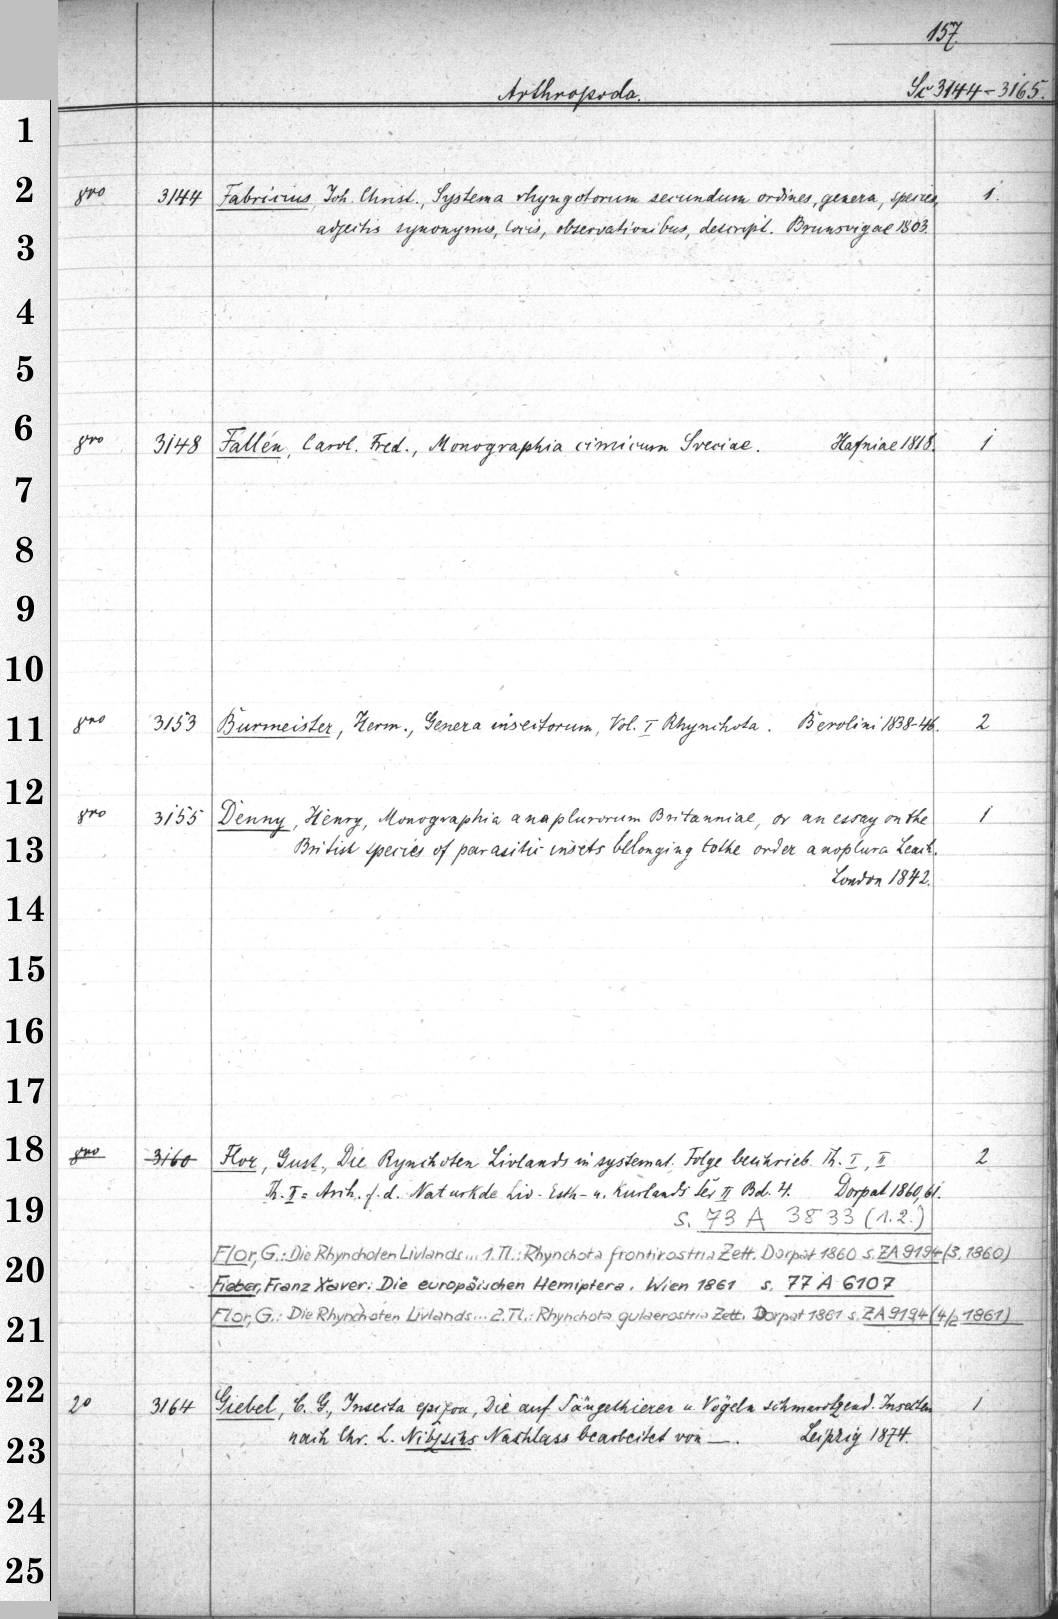 157.
Arthropoda. Sc 3144-3165.
1
2 8vo 3144 Fabricius, Joh. Christ., Systema rhyngotorum secundum ordines, genera, species, 1.
3 adjectis synonymis, locis, observationibus, descript. Brunsvigae 1803.
4
5
6 8vo 3148 Fallén, Carol. Fred., Monographia cimicum Sveciae. Hafniae 1818. 1
7
8
9
10
11 8vo 3153 Burmeister, Herm., Genera insectorum, Vol. I Rhynchota. Berolini 1838-46. 2
12 8vo 3155 Denny, Henry, Monographia anaplurorum Britanniae, or an essay on the 1
13 British species of parasitic insets belonging to the order anoplura Leach.
London 1842.
14
15
16
17
18 8vo 3160 Flor, Gust., Die Rynchoten Livlands in systemat. Folge beschrieb. Th. I, II 2
Th. I = Arch. f. d. Naturkde Liv- Esth- u. Kurlands Ser II Bd. 4. Dorpat 1860,61.
19 s. 73 A 3833 (1.2.)
20 Flor, G.: Die Rhynchoten Livlands... 1. Tl.: Rhynchota frontirostria Zett. Dorpat 1860 s. ZA 9194 (3. 1860)
Fieber, Franz Xaver: Die europäischen Hemiptera. Wien 1861 s. 77 A 6107
21 Flor, G.: Die Rhynchoten Livlands... 2. Tl.: Rhynchota gulaerostria Zett. Dorpat 1861 s. ZA 9194 (4/2 1861)
22 20 3164 Giebel, C. G., Insecta epizoa, Die auf Säugethieren u. Vögeln schmarotzend. Insecten 1
23 nach Chr. L. Nitzschs Nachlass bearbeitet von —. Leipzig 1874.
24
25